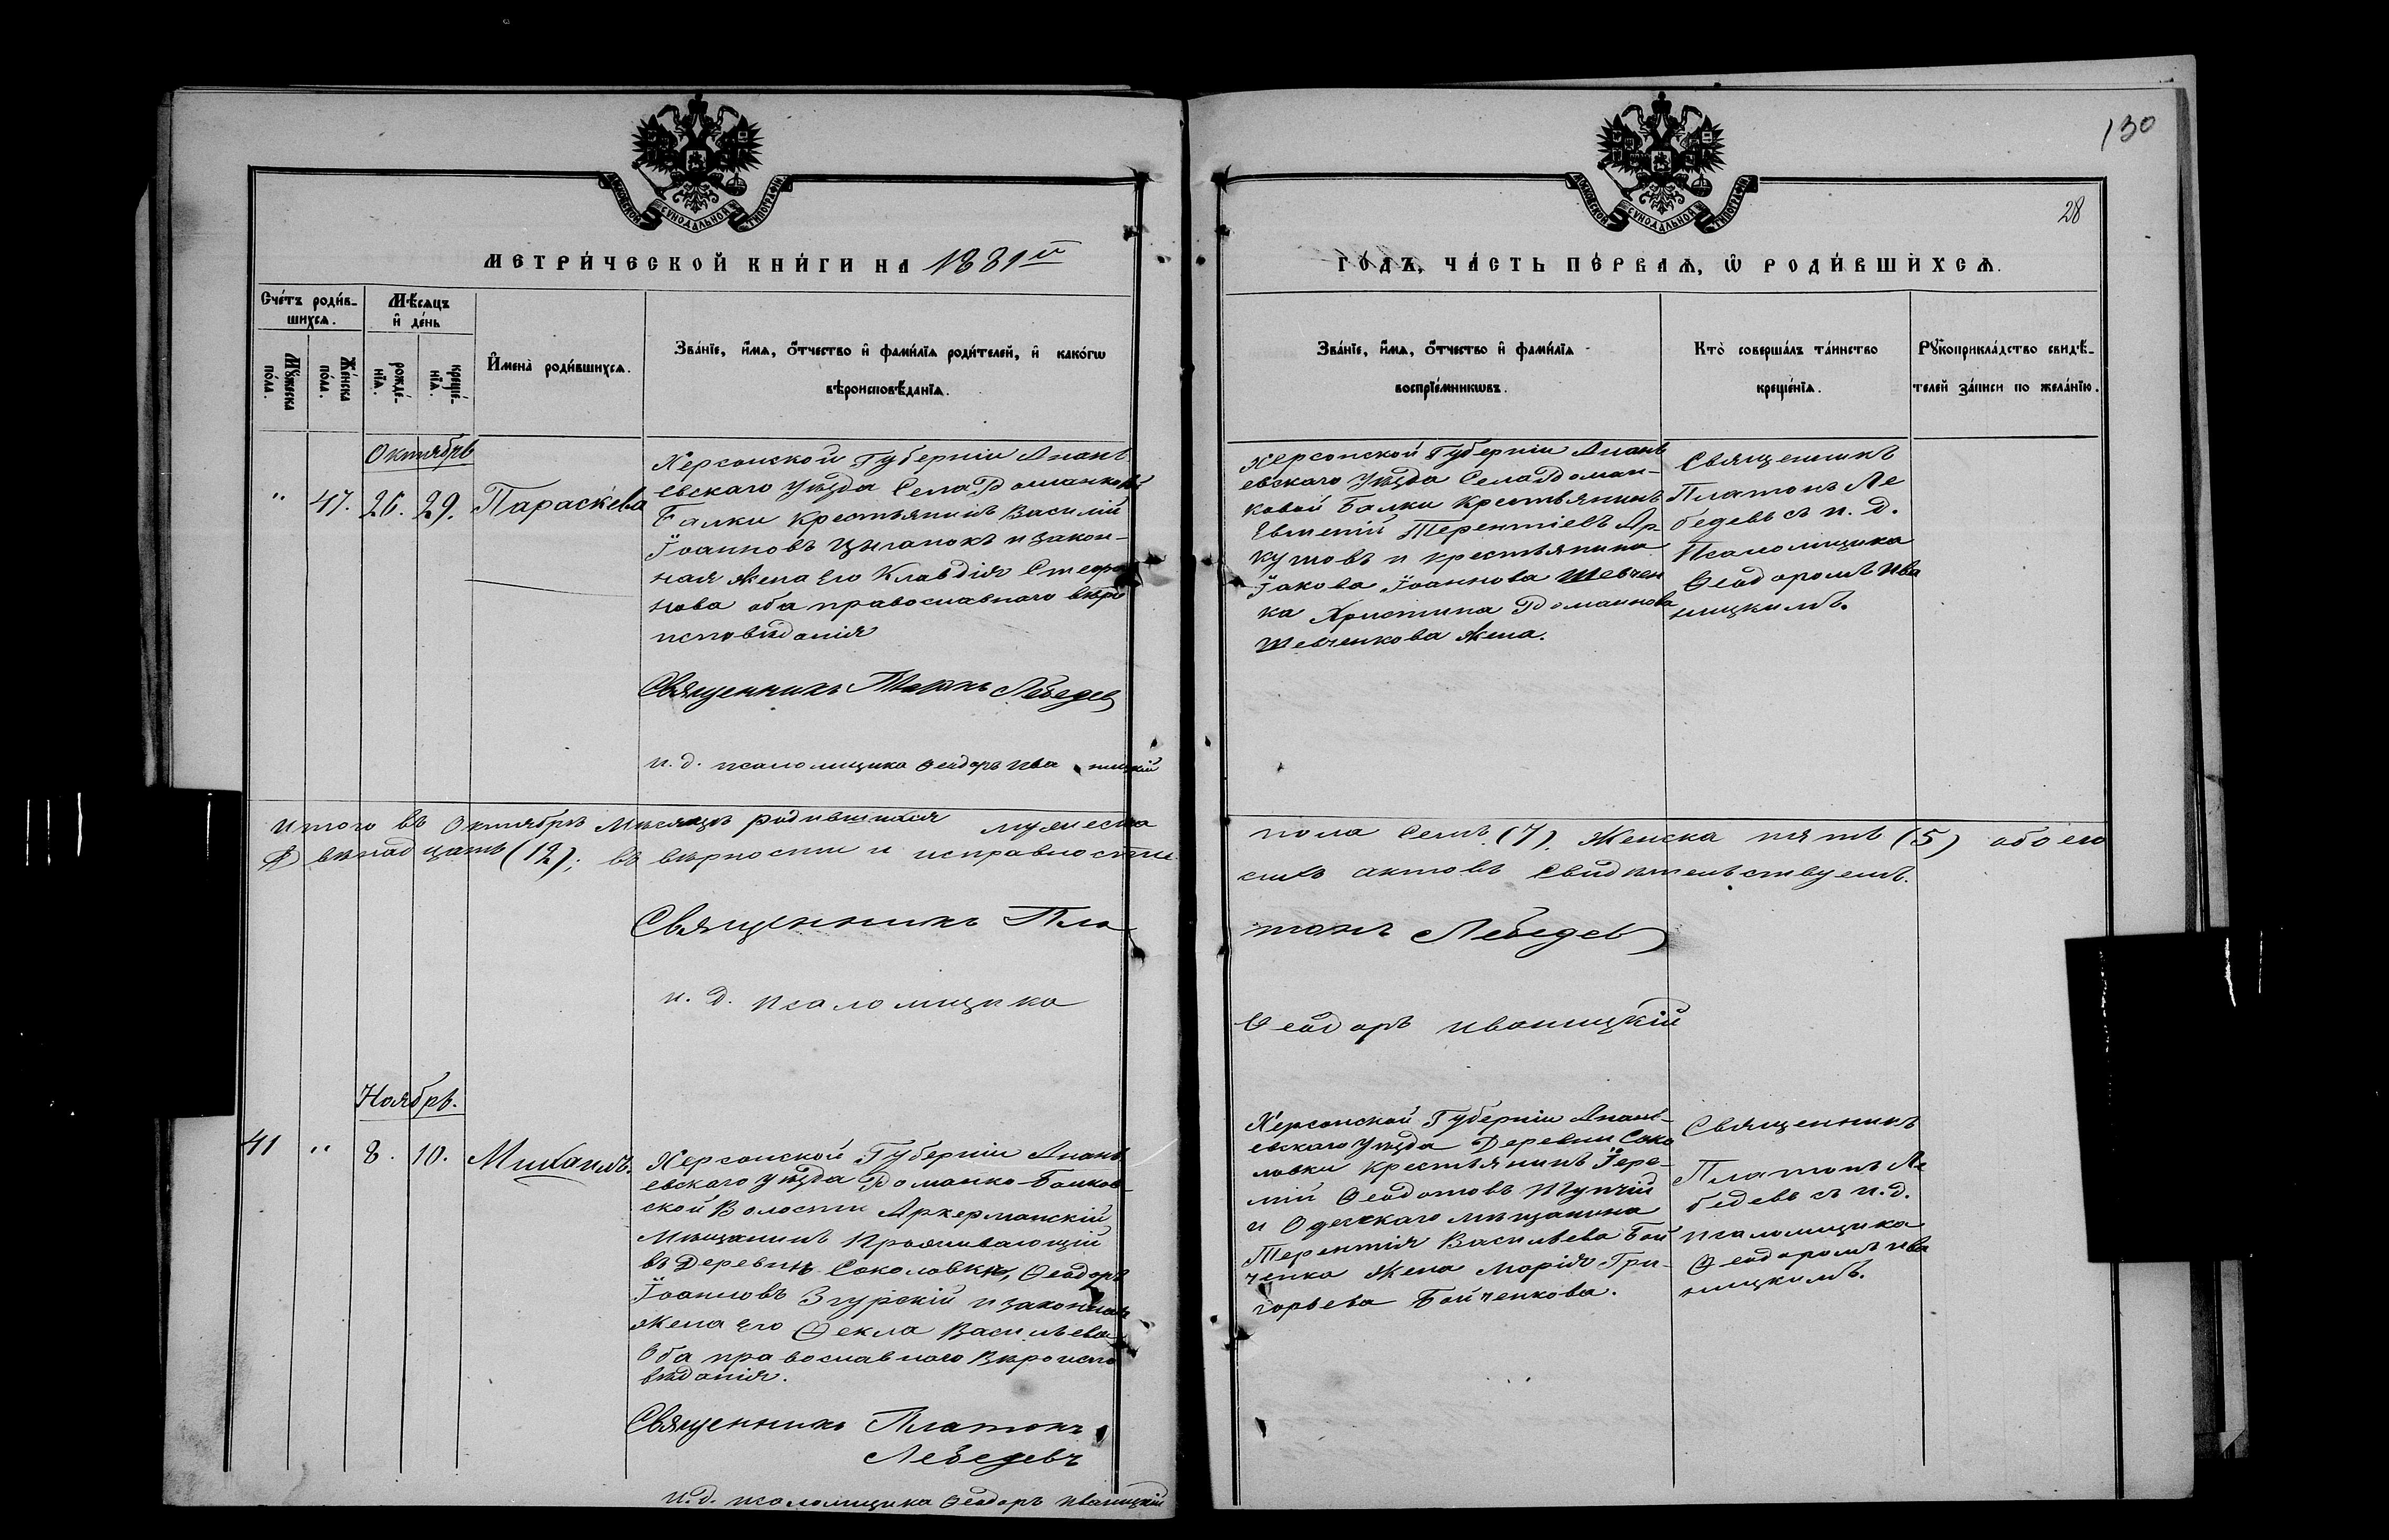 130
28
МОСКОВСКОЙ СУНОДАЛЬНОЙ ТИПОГРАФІИ
МОСКОВСКОЙ СУНОДАЛЬНОЙ ТИПОГРАФІИ
МЕТРИ́ЧЕСКОЙ КНИ́ГИ НА 1881й
ГО́ДЪ, ЧА́СТЬ ПЕ́РВАѦ, Ѡ РОДИ́ВШИХСѦ.
Сче́тъ роди́в-
шихсѧ.
Мꙋ́жеска
по́ла.
Же́нска
по́ла.
Мѣ́сѧцъ
и҆ де́нь
рожде́-
нїѧ.
креще́-
нїѧ.
И҆мена̀ роди́вшихсѧ.
Зва́нїе, и҆́мѧ, ѻ҆́тчество и҆ фами́лїѧ роди́телей, и҆ како́гѡ
вѣроисповѣ́данїѧ.
Зва́нїе, и҆́мѧ, ѻ҆́тчество и҆ фами́лїѧ
воспрїе́мникѡвъ.
Кто̀ соверша́лъ та́инство
креще́нїѧ.
Рꙋкоприкла́дство свидѣ́-
телей за́писи по жела́нїю.
Октябрь
" 47. 26. 29. Параскева
Херсонской Губерніи Анань
евскаго уѣзда Села Доманковой
Балки крестьянинъ Василій
Іоанновъ Цыганокъ и закон-
ная жена его Клавдія Стефа
нова оба православнаго вѣро
исповѣданія
Священникъ Платонъ Лебедев
и. д. псаломщика Ѳеодоръ Ива ницкій
Херсонской Губерніи Анань
евскаго уѣзда Села Доман-
ковой Балки крестьянинъ
Евтотій Терентіевъ Ар-
кутовъ и крестьянина
Іакова Іоаннова Шевчен
ка Христина Доманнова
Шевченкова жена.
Священникъ
Платонъ Ле
бедевъ съ и. д.
Псаломщика
Ѳеодоромъ Ива
ницкимъ.
Итого въ Октябрѣ Мѣсяцѣ родившихся мужеска
пола Семь (7). Женска пять (5) обоего
Двѣнадцать (12); въ вѣрности и исправности
сихъ актовъ Свидѣтельствуемъ.
Священникъ Пла
тонъ Лебедев
и. д. псаломщика
Ѳеодоръ Иваницкій
Ноябрь.
41 " 8. 10. Михаилъ.
Херсонской Губерніи Анань
евскаго уѣзда Доманко-Балков-
ской Волости Аккерманскій
Мѣщанинъ Проживающій
въ Деревнѣ Соколовкѣ, Ѳеодоръ
Іоанновъ Згурскій и законная
жена его Ѳекла Васильева
Оба православнаго Вѣроиспо
вѣданія.
Священникъ Платонъ
Лебедевъ
и. д. псаломщика Ѳеодоръ Иваницкій
Херсонской Губерніи Анань-
евскаго уѣзда Деревни Соко
ловки крестьянинъ Іере-
мій Ѳеодотовъ Тупчій
и Одесскаго мѣщанина
Терентія Васильева Бой
ченка жена Марія Гри-
горьева Бойченкова.
Священникъ
Платонъ Ле
бедевъ съ и. д.
псаломщика
Ѳеодоромъ Ива
ницкимъ.